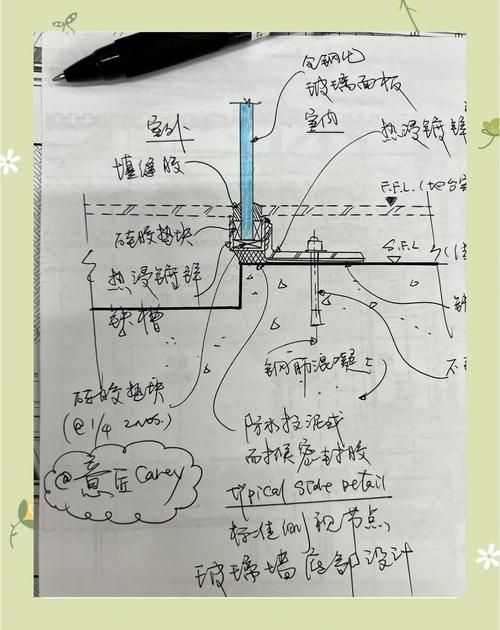 全钢化
玻璃面板
室外
室内
填缝胶
热浸镀锌
F.F.L.(地台完
硅胶垫块
S.F.L
热浸镀锌
铁槽
钢筋混凝土
硅胶垫块
(@1/4 2NOS.)
防水
耐候密封胶
@意匠Carey
typical side detail
标准侧视节点
玻璃墙底部设计